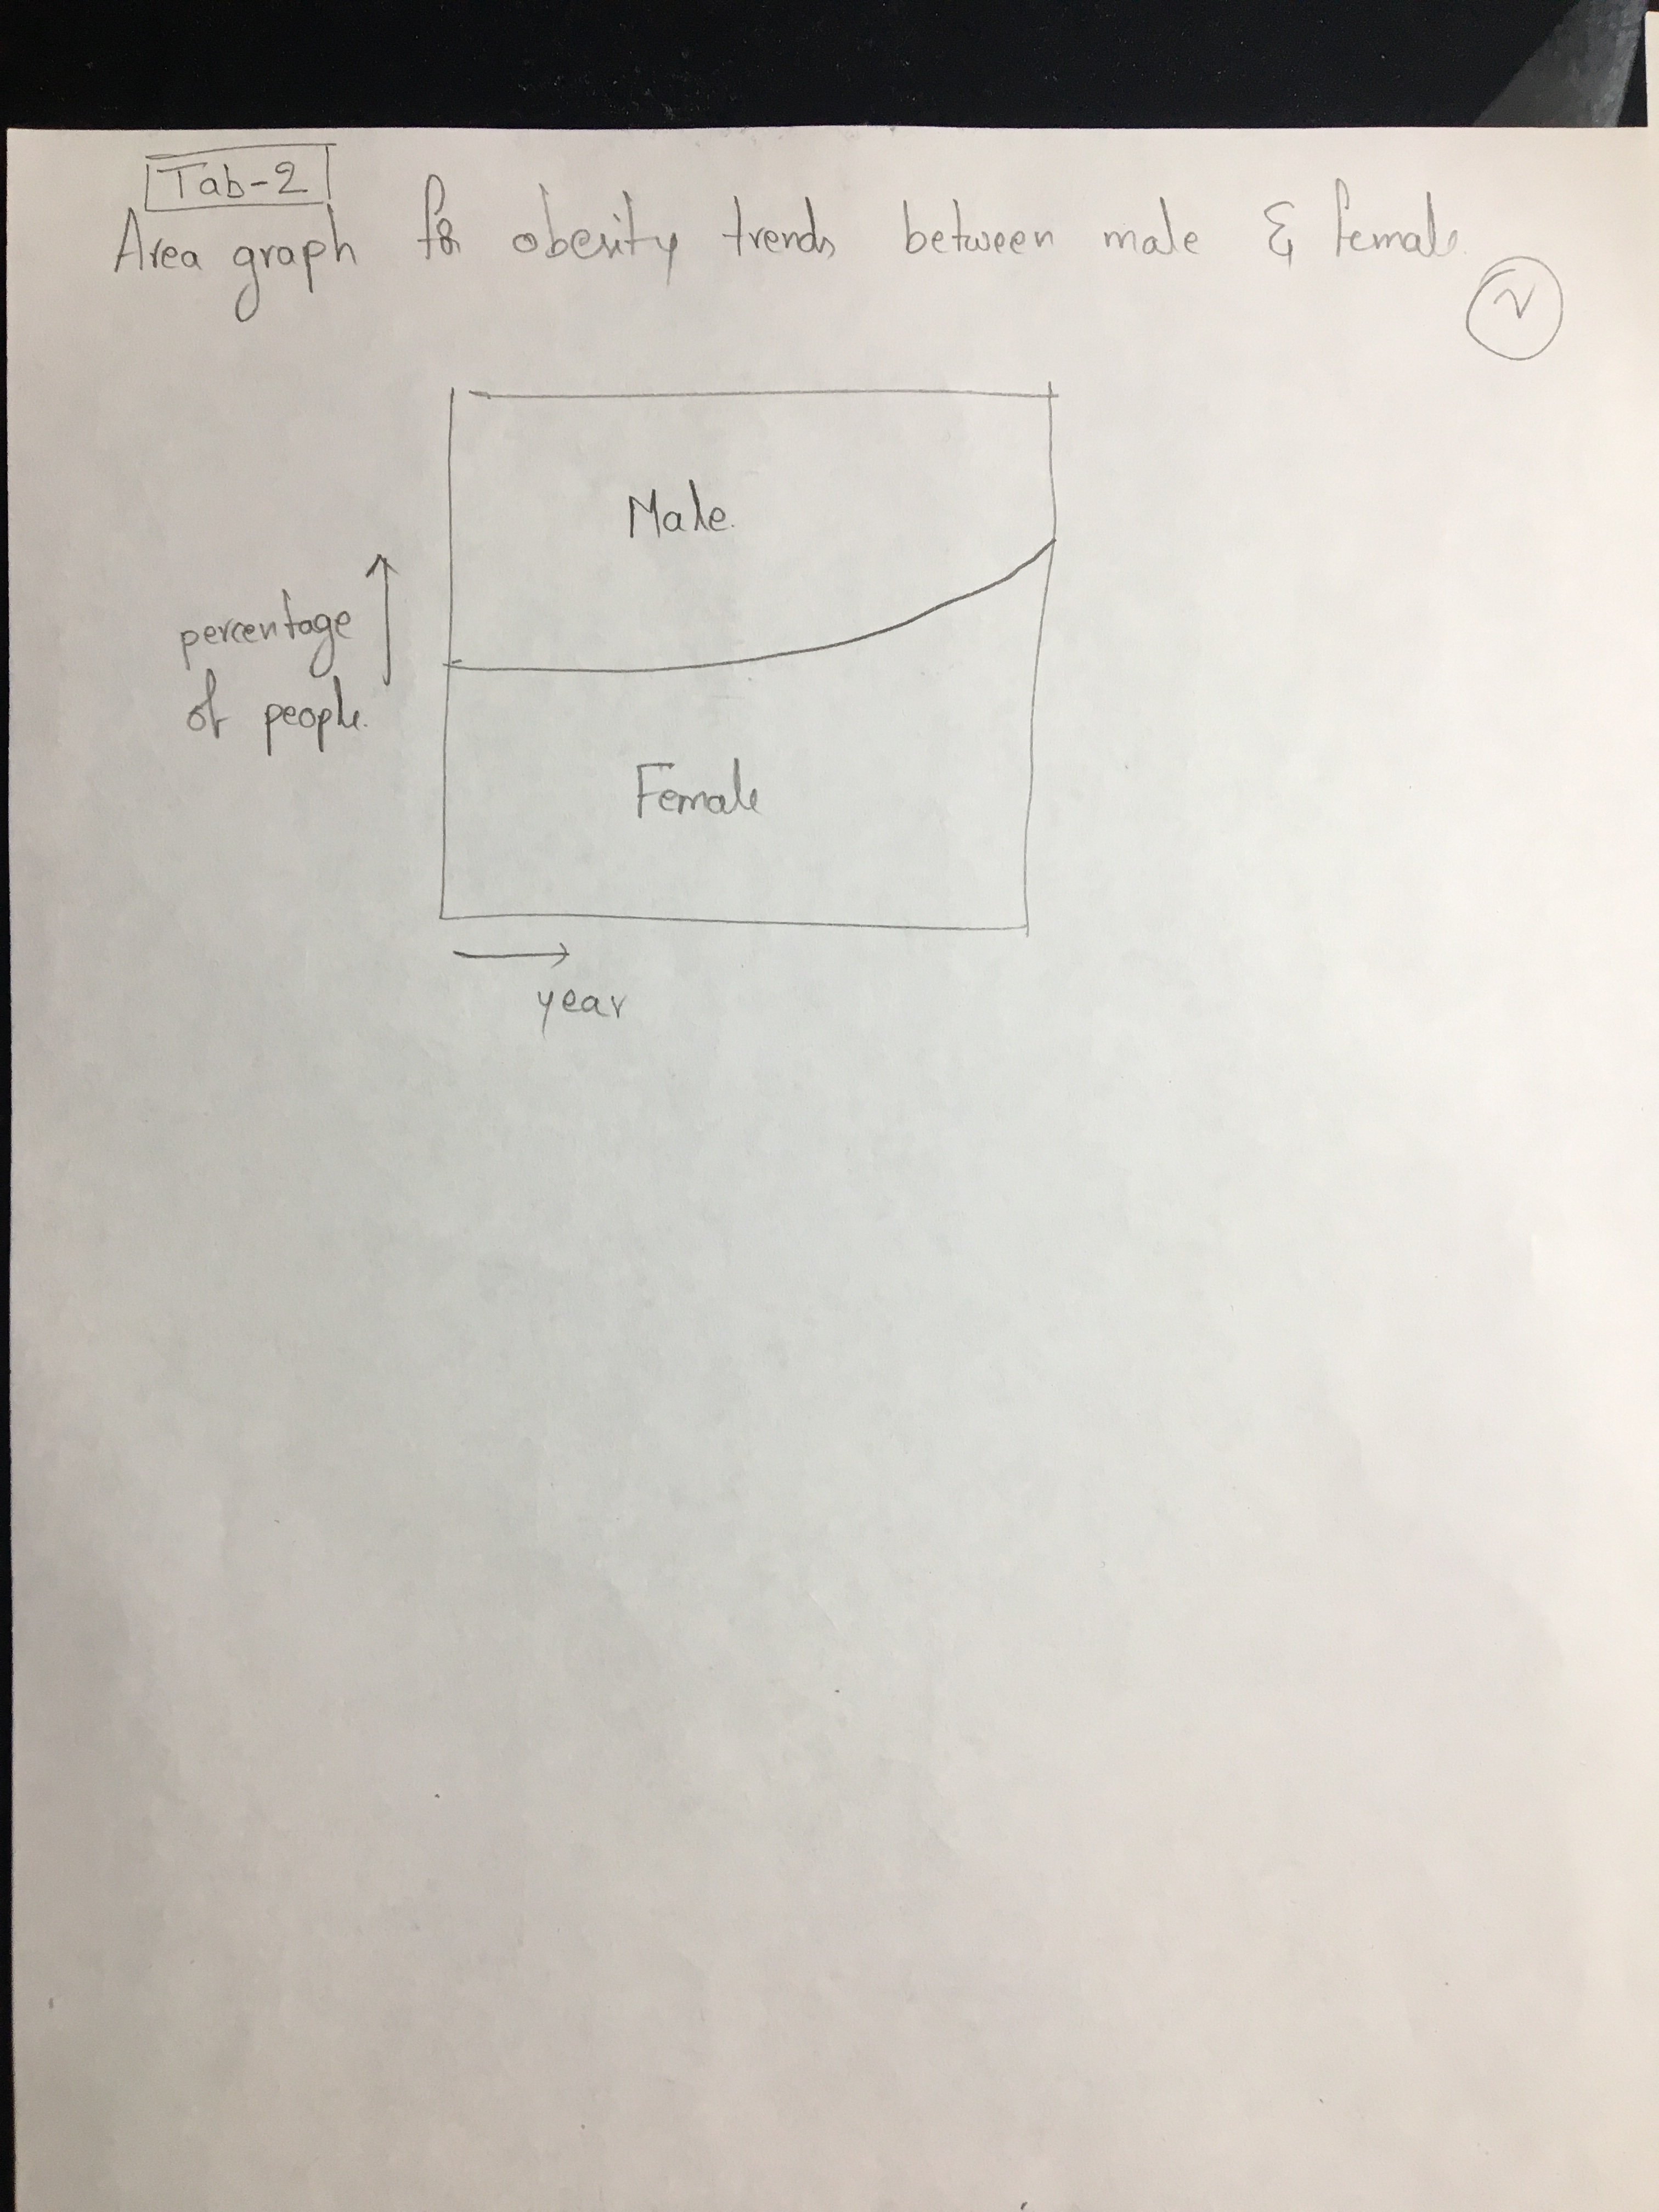 Tab-2
Area graph for obesity trends between male & female
2
Male
percentage
of people.
Female
year